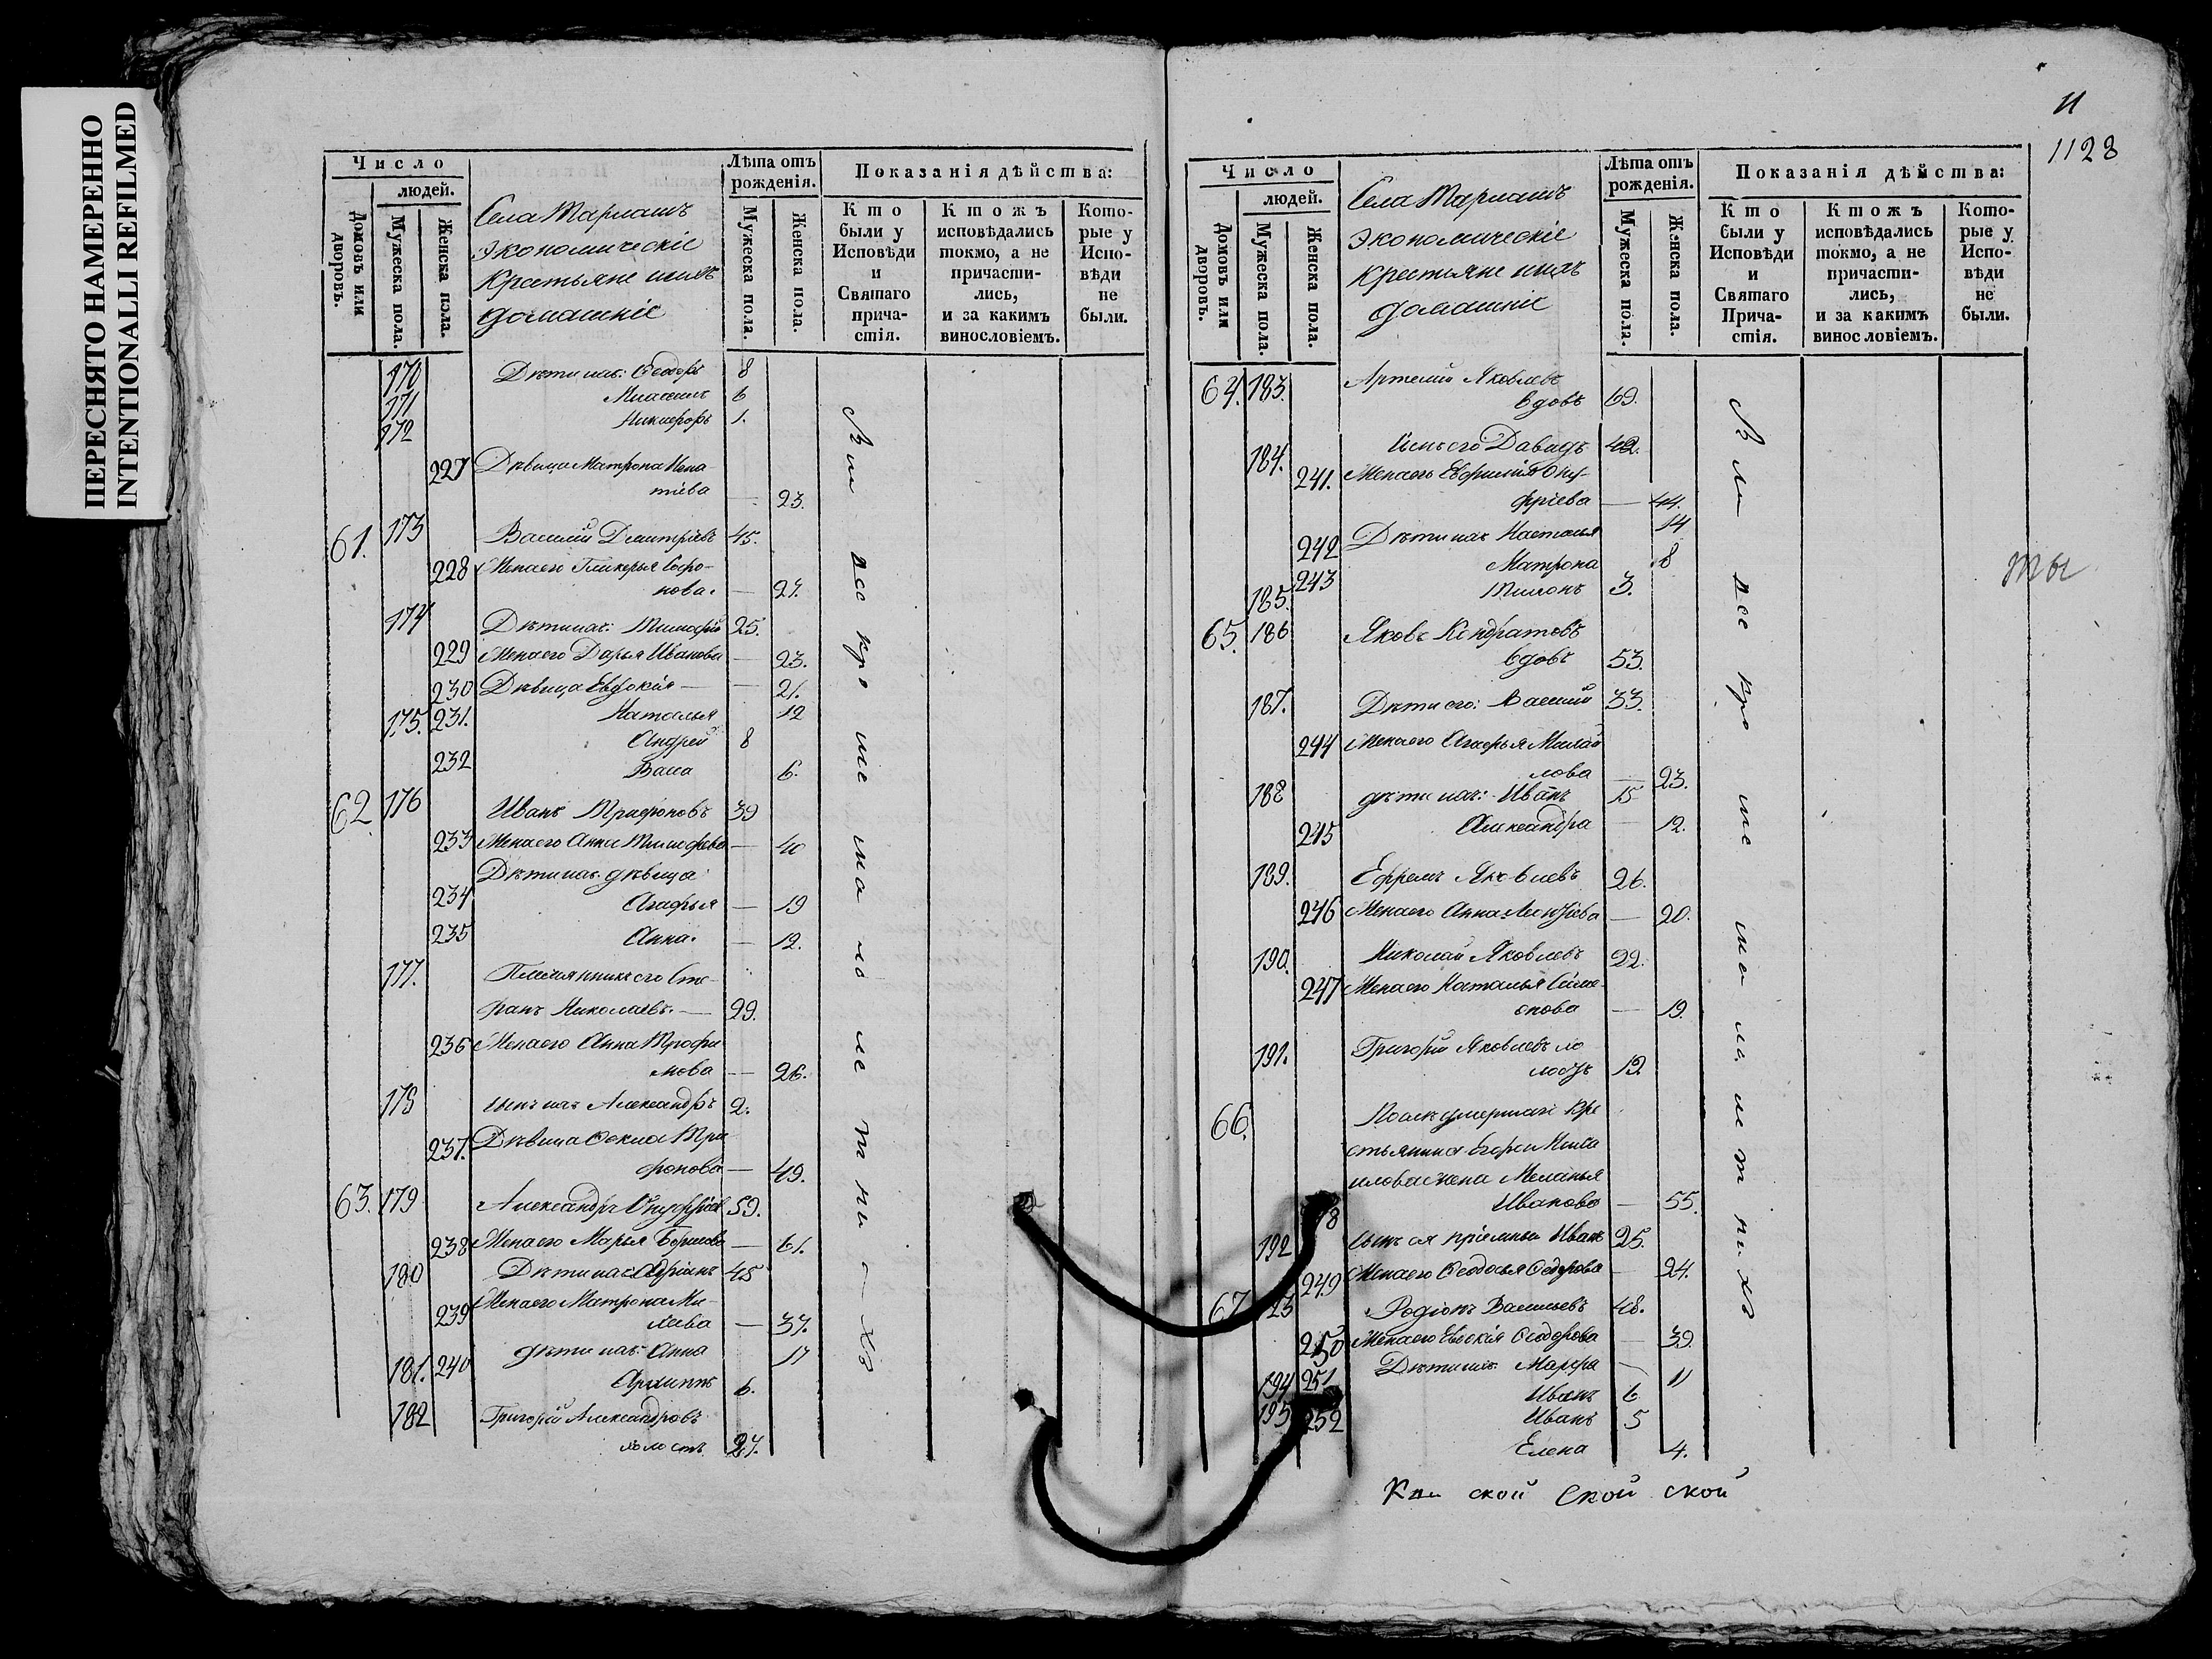 ПЕРЕСНЯТО НАМЕРЕННО
INTENTIONALLI REFILMED
Число
людей.
Домовъ или дворовъ.
Мужеска пола.
Женска пола.
Села
экономическіе
крестьяне ихъ
домашніе
Лѣта отъ рожденія.
Мужеска пола
Женска пола.
Показанія дѣйства:
Кто были у Исповѣди и Святаго причастія.
Ктожъ исповѣдались токмо, а не причастились, и за какимъ винословіемъ.
Которые у Исповѣди не были.
170 Дѣти ихъ: Ѳеодоръ 8
171 6
172 Никифоръ 1.
227 Дѣвица Матрона Игна-
тіева — 23.
61. 173 Василій Димитріевъ 45.
228 Жена его Гликерья Софро-
нова. — 27.
174 Дѣти ихъ: Тимофей 25.
229 Жена его Дарья Иванова — 23.
230 Дѣвица Евдокія — 21.
175. 231. Наталья 12
Андрей 8
232 Васса 6.
62. 176 Иванъ Трифоновъ 39
233 Жена его Анна — 40
Дѣти ихъ дѣвица
234 Агафья — 19
235 Анна. — 12.
177. Племянникъ его Сте-
фанъ Николаевъ. — 29.
236 Жена его Анна Трофи
мова — 26.
178 сынъ ихъ Александръ 2.
237. Дѣвица Ѳекла Три
фонова — 49.
63. 179 Александръ Онуфріевъ 59.
238 Жена его Марья Борисова — 61.
180 Дѣти ихъ Адріанъ 45
239 Жена его Матрона
— 37.
181. 240 дѣти ихъ: Анна 17
Архиппъ 6.
182 Григорій Александровъ
холостъ 27.
11
1128
Число
людей.
Домовъ или дворовъ.
Мужеска пола.
Женска пола.
Села
экономическіе
крестьяне ихъ
домашніе
Лѣта отъ рожденія.
Мужеска пола.
Женска пола.
Показанія дѣйства:
Кто были у Исповѣди и Святаго Причастія.
Ктожъ исповѣдались токмо, а не причастились, и за какимъ винословіемъ.
Которые у Исповѣди не были.
64. 183. Артемій Яковлевъ
вдовъ 69.
184. Сынъ его Давидъ 42.
241. Жена его Евфимія Ону-
фріева — 44.
242 Дѣти ихъ Настасья 14
243 Матрона 8
185. 3.
65. 186 Яковъ Кондратовъ
вдовъ 53.
187. Дѣти его: Василій 33.
244 Жена его Агафья Михай
лова — 23.
188 дѣти ихъ: Иванъ 15
245 Александра — 12.
189. Ефремъ Яковлевъ 26.
246 Жена его Анна — 20.
190. Николай Яковлевъ 22.
247 Жена его Наталья Симе-
онова — 19.
191. Григорій Яковлевъ хо
лостъ 19
66. Послѣ умершаго кре
стьянина Егора Миха
илова жена Меланья
Иванова — 55.
192 сынъ ея пріемный Иванъ 25.
249 Жена его Ѳеодосья Ѳеодорова — 24.
67. Родіонъ Васильевъ 48.
250 Жена его Ѳеодорова — 39.
251 Дѣти ихъ: Марфа — 11
194 Иванъ 6
195 Иванъ 5
252 Елена 4.
ской ской ской
Всѣ кроме малолѣтнихъ
Всѣ кроме малолѣтнихъ
ты